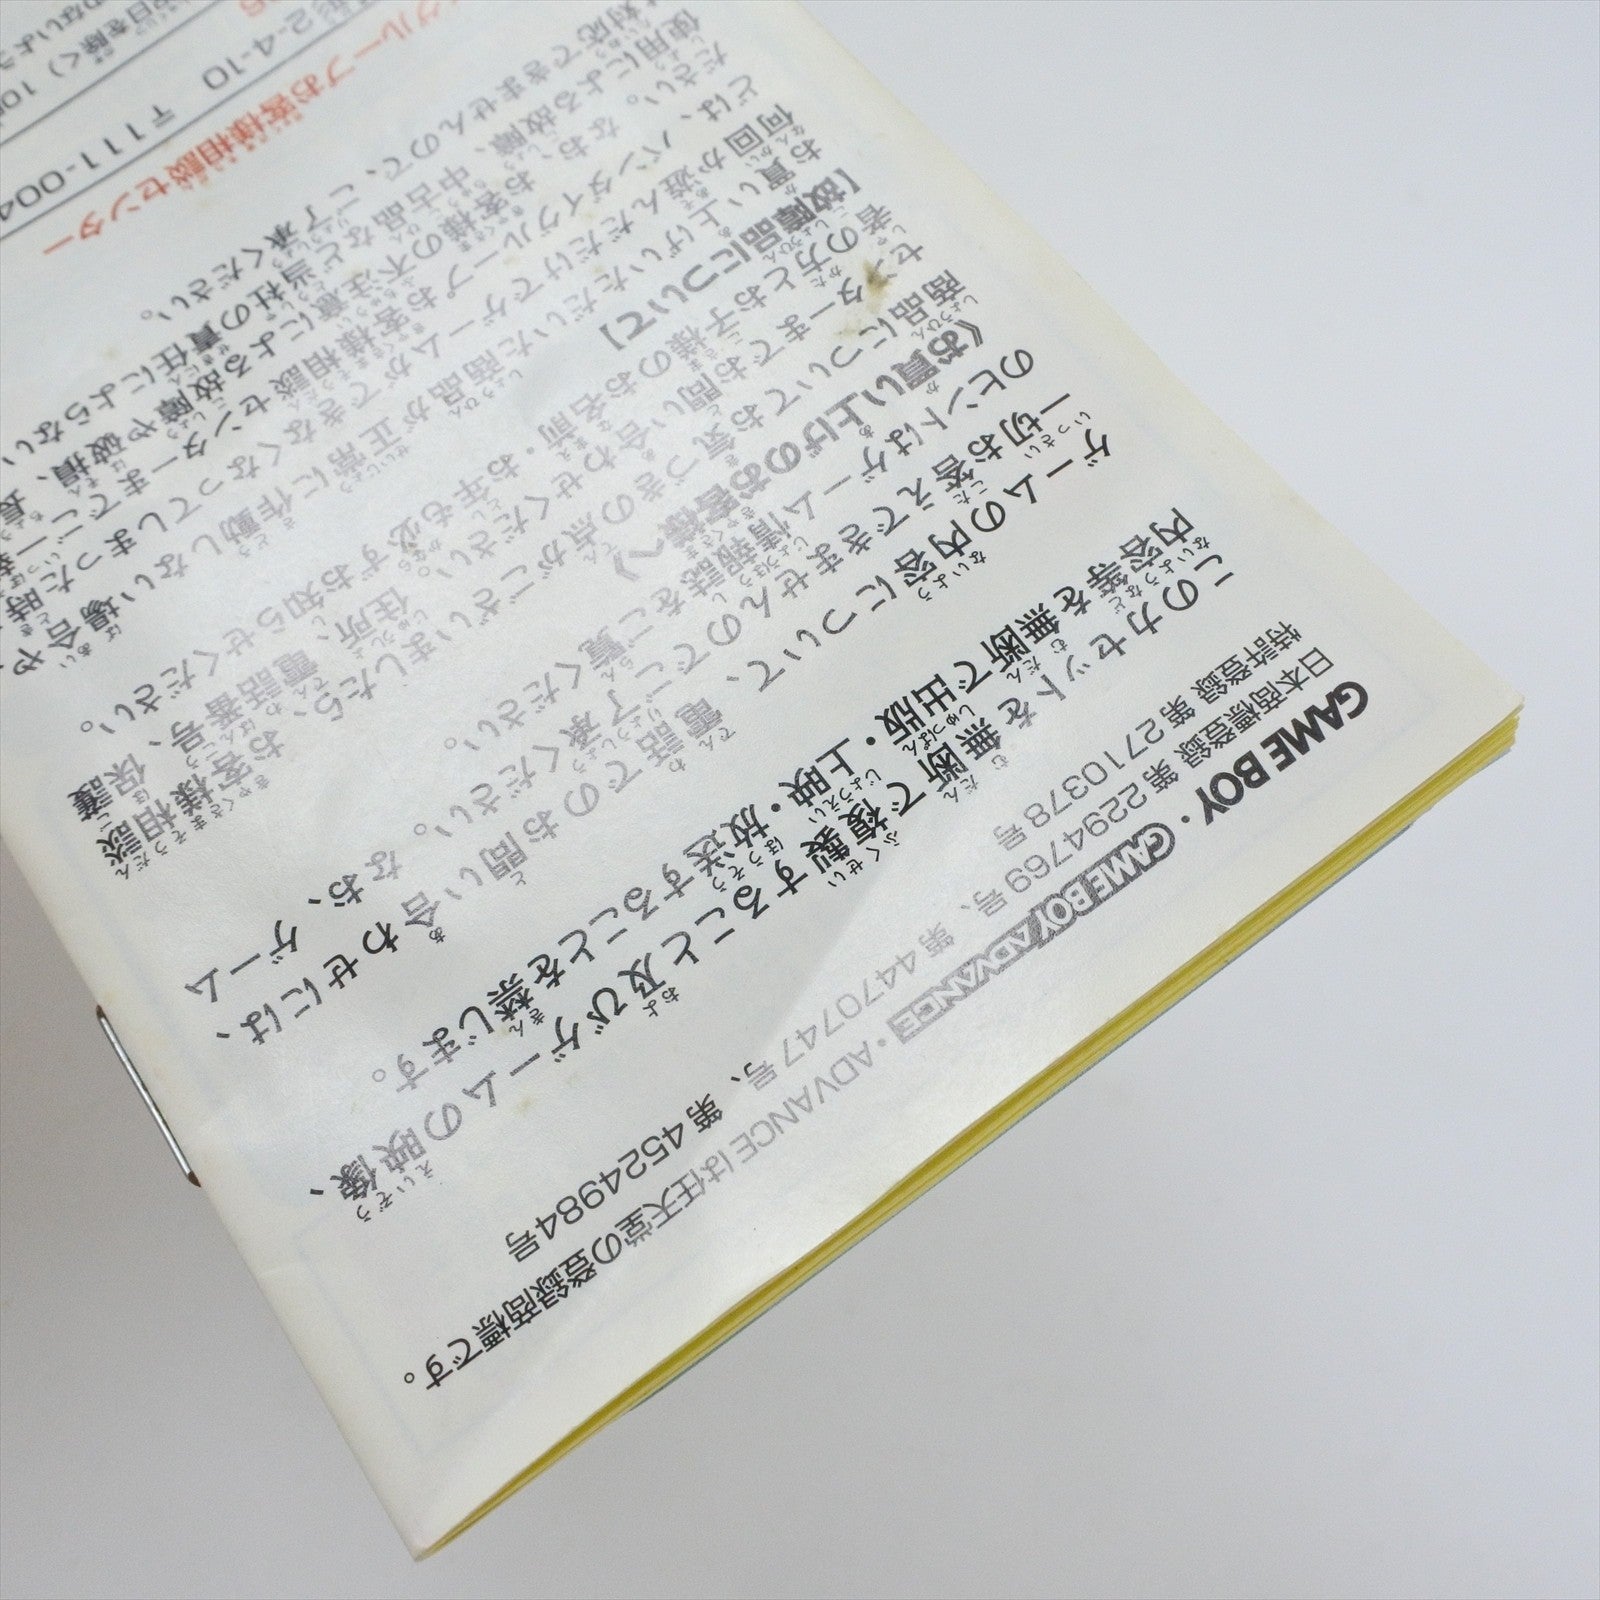 GAME BOY・GAME BOY ADVANCE・ADVANCEは任天堂の登録商標です。
日本商標登録 第2294769号、第4470747号、第4524984号
特許登録 第2710378号
このカセットを無断で複製すること及びゲームの映像、
内容等を無断で出版・上映・放送することを禁じます。
ゲームの内容について、電話でのお問い合わせには、
一切お答えできませんのでご了承ください。なお、ゲーム
のヒントはゲーム情報誌をご覧ください。
《お買い上げのお客様へ》
商品についてお気づきの点がございましたら、お客様相談
センターまでお問い合わせください。住所、電話番号、保護
者の方とお子様のお名前・お年も必ずお知らせください。
【故障品について】
お買い上げいただいた商品が正常に作動しない場合や、
何回か遊んだだけでゲームができなくなってしまった時
どは、バンダイグループお客様相談センターまでご一報
ださい。なお、お客様の不注意による故障や破損、長
使用による故障、中古品など当社の責任によらない
対応できませんので、ご了承ください。
グループお客様相談センター
2-4-10 〒111-004
日を除く) 10